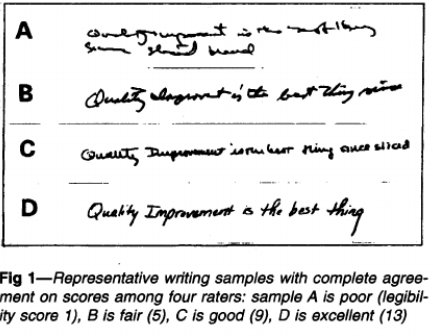 A is the
B Quality is the best thing since
C Quality Improvement is the best thing since sliced
D Quality Improvement is the best thing
Fig 1—Representative writing samples with complete agree-
ment on scores among four raters: sample A is poor (legibil-
ity score 1), B is fair (5), C is good (9), D is excellent (13)